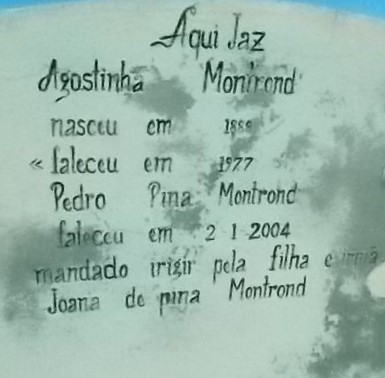 Aqui Jaz
Agostinha Montrond
nasceu em
« faleceu em 1977
Pedro Pina Montrond
faleceu em 2 1 2004
mandado irigir pela filha e irmã
Joana de pina Montrond